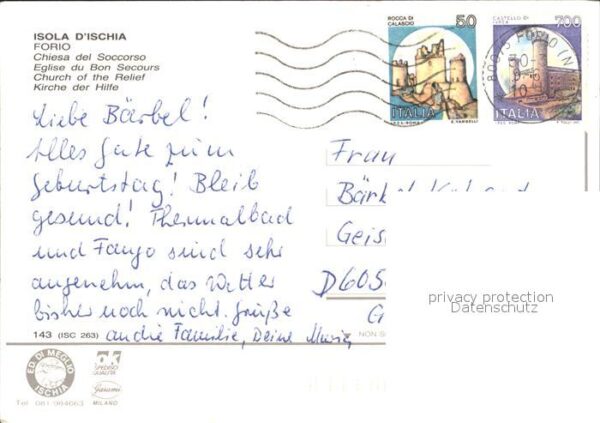 ISOLA D'ISCHIA
FORIO
Chiesa del Soccorso
Eglise du Bon Secours
Church of the Relief
Kirche der Hilfe
ROCCA DI CALASCIO
50
ITALIA
CASTELLO DI IVREA
700
ITALIA
Liebe Bärbel!
Alles Gute zum
Geburtstag! Bleib
gesund! Thermalbad
und Fango sind sehr
angenehm, das Wetter
bisher noch nicht. Grüße
an die Familie, Deine Maria
Frau
Bärbel
Geis
D605
G
privacy protection
Datenschutz
143 (ISC 263)
NON S
ED. DI MEGLIO
ISCHIA
Tel. 081/984663
OK
SPEDINO
QUALITÀ
MILANO